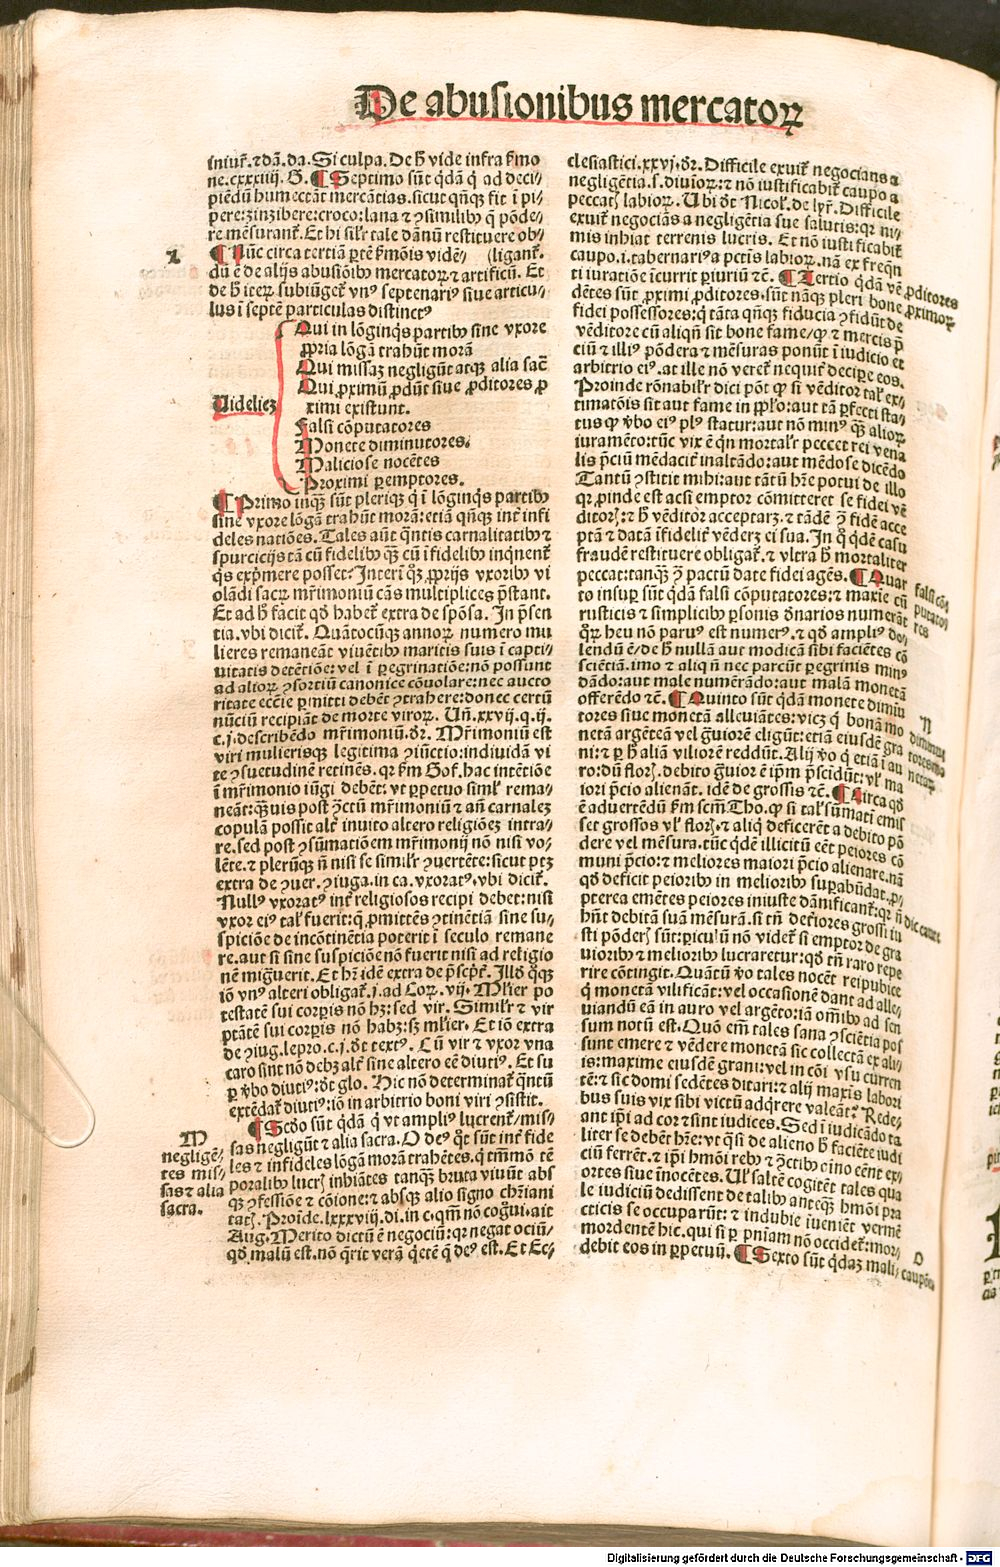 De abusionibus mercatoꝝ
iniur̃.ꝛdã.da.Si culpa.De h̃ vide infra ßmo
ne.cxxxiiij.G.¶Septimo sũt q̃dã q̃ ad deci-
piẽdũ humectãt mercãtias.sicut qñqꝫ fit ĩ pi-
pere:zinzibere:croco:lana ⁊ ꝯsimilibꝰ q̃ põde-
re mẽsurant̃.Et hi sil̃r tale dãnũ restituere ob-
(ligant̃.
L
¶Nũc circa tertiã ꝑtẽ ßmõis vidẽ-
dũ ẽ de alijs abusiõibꝰ mercatoꝝ ⁊ artificũ. Et
de h̃ iteꝝ subiũget̃ vnꝰ septenariꝰ siue articu-
lus ĩ septẽ particulas distinctꝰ
Uidelicꝫ
Qui in lõginq̃s partibꝰ sine vxore
ꝓpria lõgã trahũt morã
Qui missaꝫ negligũt atqꝫ alia sac̃
Qui ꝓximũ ꝓdũt siue ꝓditores ꝓ
ximi existunt.
Falsi cõputatores
Monete diminutores.
Maliciose nocẽtes
Proximi ꝑemptores.
¶Primo inqꝫ sũt pleriqꝫ q̃ ĩ lõginq̃s partibꝰ
sine vxore lõgã trahũt morã:etiã qñqꝫ int̃ infi
deles natiões. Tales aut̃ q̃ntis carnalitatibꝰ ⁊
spurcicijs tã cũ fidelibꝰ qꝫ cũ ĩfidelibꝰ inq̃nent̃
q̃s exp̃mere posset? Interĩ qꝫ ꝓprijs vxoribꝰ vi
olãdi sacꝝ mr̃imoniũ cãs multiplices p̃stant.
Et ad h̃ facit qđ habet̃ extra de spõsa. In p̃sen
tia.vbi dicit̃. Quãtocũqꝫ annoꝝ numero mu
lieres remaneãt viuẽtibꝰ maritis suis ĩ capti-
uitatis detẽtiõe:vel ĩ ꝑegrinatiõe:nõ possunt
ad alioꝝ ꝯsortiũ canonice cõuolare:nec aucto
ritate eccl̃ie ꝑmitti debẽt ꝯtrahere:donec certũ
nũciũ recipiãt de morte viroꝝ. Uñ.xxvij.q.ij.
c.j.describẽdo mr̃imoniũ.dr̃. Mr̃imoniũ est
viri mulierisqꝫ legitima ꝯiũctio:indiuidã vi
te ꝯsuetudinẽ retinẽs.qr ßm Gof.hac intẽtiõe
ĩ mr̃imonio iũgi debẽt: vt ꝑpetuo siml̃ rema-
neãt:qꝫuis post ꝯctũ mr̃imoniũ ⁊ añ carnalez
copulã possit alt̃ inuito altero religiõez intra-
re.sed post ꝯsũmatiõem mr̃imonij nõ nisi vo-
lẽte.⁊ plerũqꝫ ñ nisi se simil̃r ꝯuertẽte:sicut ptꝫ
extra de ꝯuer.ꝯiuga.in ca.vxoratꝰ.vbi dicit̃.
Nullꝰ vxoratꝰ int̃ religiosos recipi debet:nisi
vxor eiꝰ tal̃ fuerit:q̃ ꝓmittẽs ꝯtinẽtiã sine su-
spiciõe de incõtinẽtia poterit ĩ seculo remane
re.aut si sine suspiciõe nõ fuerit nisi ad religio
nẽ migr̃uerit. Et hꝫ idẽ extra de p̃scp̃t̃. Illđ qꝫ
iõ vnꝰ alteri obligat̃.j.ad Coꝝ.vij. Ml̃ier po
testatẽ sui corꝑis nõ hꝫ:sed vir. Simil̃r ⁊ vir
ptãtẽ sui corꝑis nõ habꝫ:sꝫ ml̃ier. Et iõ extra
de ꝯiug.lepro.c.j.dt̃ textꝰ. Cũ vir ⁊ vxor vna
caro sint nõ debꝫ alt̃ sine altero eẽ diutiꝰ. Et su
ꝑ v̾bo diutiꝰ:dt̃ glo. Hic nõ determinat̃ q̃ntũ
extẽdat̃ diutiꝰ:iõ in arbitrio boni viri ꝯsistit.
M
negligẽ-
tes mis-
sas ⁊ alia
sacra.
¶Scđo sũt q̃dã q̃ vt ampliꝰ lucrent̃/mis-
sas negligũt ⁊ alia sacra. O deꝰ q̃t sũt int̃ fide
les ⁊ infideles lõgã morã trahẽtes.q̃ tm̃mõ tẽ
poralibꝰ lucrꝫ inhiãtes tanqꝫ bruta viuũt abs
qꝫ ꝯfessiõe ⁊ cõione:⁊ absqꝫ alio signo chr̃iani
tatꝫ. Proide.lxxxviij.di.in c.qm̃ nõ cogui.ait
Aug. Merito dictũ ẽ negociũ:qr negat ociũ/
qđ malũ est.nõ q̃rit verã q̃etẽ q̃ deꝰ est. Et Ec-
clesiastici.xxvj.dr̃. Difficile exuit̃ negocians a
negligẽtia.s.diuioꝝ:⁊ nõ iustificabit̃ caupo a
peccatꝫ labioꝝ. Ubi dt̃ Nicol̃.de lyr̃. Difficile
exuit̃ negociãs a negligẽtia sue salutis:qr ni-
mis inhiat terrenis lucris. Et nõ iusti ficabit̃
caupo.i.tabernariꝰ a pctis labioꝝ.nã ex freq̃n
ti iuratiõe ĩcurrit ꝑiuriũ ⁊c. ¶Tertio q̃dã vẽ
ꝓditores
ꝓximoꝝ
dẽtes sũt ꝓximi ꝓditores.sũt nãqꝫ pleri bone
fidei possessores:q̃ tãta qñqꝫ fiducia ꝯfidũt de
vẽditore cũ aliqñ sit bone fame/ꝙ ⁊ mercis p̃
ciũ ⁊ illiꝰ põdera ⁊ mẽsuras ponũt ĩ iudicio et
arbitrio eiꝰ.at ille nõ veret̃ nequit̃ decipe eos.
Proinde rõnabil̃r dici põt ꝙ si vẽditor tal̃ ex-
timatõis sit aut fame in pp̃lo:aut tã ꝑfecti sta-
tus ꝙ v̾bo eiꝰ plꝰ statur:aut nõ minꝰ qꝫ alioꝝ
iuramẽto:tũc vix ẽ q̃n mortal̃r peccet rei vena
lis p̃ciũ mẽdacit̃ inaltãdo:aut mẽdose dicẽdo
Tantũ ꝯstitit mihi:aut tãtũ hr̃e potui de illo
qr ꝓinde est acsi emptor cõmitteret se fidei vẽ
ditorꝫ:⁊ h̃ vẽditor acceptarꝫ.⁊ tãdẽ ꝯ fidẽ acce
ptã ⁊ datã ĩfidelit̃ vẽderꝫ ei sua. In q̃ q̃dẽ casu
fraudẽ restituere obligat̃.⁊ vltra h̃ mortaliter
peccat:tanqꝫ ꝯ pactũ date fidei agẽs. ¶Quar
falsi cõ
putato
res
to insuꝑ sũt q̃dã falsi cõputatores:⁊ maxie cũ
rusticis ⁊ simplicibꝰ ꝑsonis d̃narios numerãt
qꝝ heu nõ paruꝰ est numerꝰ.⁊ qđ ampliꝰ do-
lendũ ẽ/de h̃ nullã aut modicã sibi faciẽtes cõ
sciẽtiã.imo ⁊ aliqñ nec parcũt ꝑegrinis minꝰ
dãdo:aut male numerãdo:aut malã monetã
offerẽdo ⁊c. ¶Quinto sũt q̃dã monete dimiu
N
diminuẽ
tores mo
netaꝝ
tores siue monetã alleuiãtes:vicꝫ q̃ bonã mo
netã argẽteã vel gr̃uiorẽ eligũt:etiã eiusdẽ gra
ni:⁊ ꝑ h̃ aliã viliorẽ reddũt. Alij v̾o q̃ etiã ĩ au
ro:dũ florꝫ.debito gr̃uior ẽ ip̃m p̃scidũt:vl̃ ma
iori p̃cio alienãt.idẽ de grossis ⁊c. ¶Circa qđ
ẽ aduertẽdũ ßm scm̃ Tho.ꝙ si tal̃ sũmati emis
set grossos vl̃ florꝫ.⁊ aliq̃ deficerẽt a debito põ
dere vel mẽsura.tũc q̃dẽ illicitũ eẽt peiores cõ
muni p̃cio:⁊ meliores maiori p̃cio alienare.nã
qđ deficit peioribꝰ in melioribꝰ suꝑabũdat.ꝓ-
pterea emẽtes peiores iniuste dãnificant̃:qr ñ
dic caute
hñt debitã suã mẽsurã.si tñ det̾iores grossi iu
sti põderꝫ sũt:ꝑicl̃ũ nõ videt̃ si emptor de gra
uioribꝰ ⁊ melioribꝰ lucraretur:qđ tñ raro repe
rire cõtingit. Quãtũ v̾o tales nocẽt reipublice
q̃ monetã vilificãt:vel occasionẽ dant ad alle-
uiandũ eã in auro vel argẽto:iã om̃ibꝰ ad sen
sum notũ est. Quõ em̃ tales sana ꝯsciẽtia pos
sunt emere ⁊ vẽdere monetã sic collectã ex ali-
is:maxime eiusdẽ grani:vel in cõi vsu curren
tẽ:⁊ sic domi sedẽtes ditari:⁊ alij maxis̃ labori
bus suis vix sibi victũ adq̃rere valeãt? Rede-
ant ip̃i ad cor ⁊ sint iudices. Sed ĩ iudicãdo ta
liter se debẽt hr̃e:vt q̃si de alieno h̃ faciẽte iudi
ciũ ferrẽt.⁊ ip̃i hmõi rebꝰ ⁊ ꝯctibꝰ oĩno eẽnt ex-
ortes siue ĩnocẽtes. Ul̃ saltẽ cogitẽt tales qua
le iudiciũ dedissent de talibꝰ anteqꝫ hmõi pra
cticis se occuparũt:⁊ indubie iueniẽt vermẽ
mordentẽ hic.qui si ꝑ pniam nõ occidet̃:mor-
debit eos in ꝑpetuũ. ¶Sexto sũt q̃daꝫ mali-
O
caupões
Digitalisierung gefördert durch die Deutsche Forschungsgemeinschaft - DFG